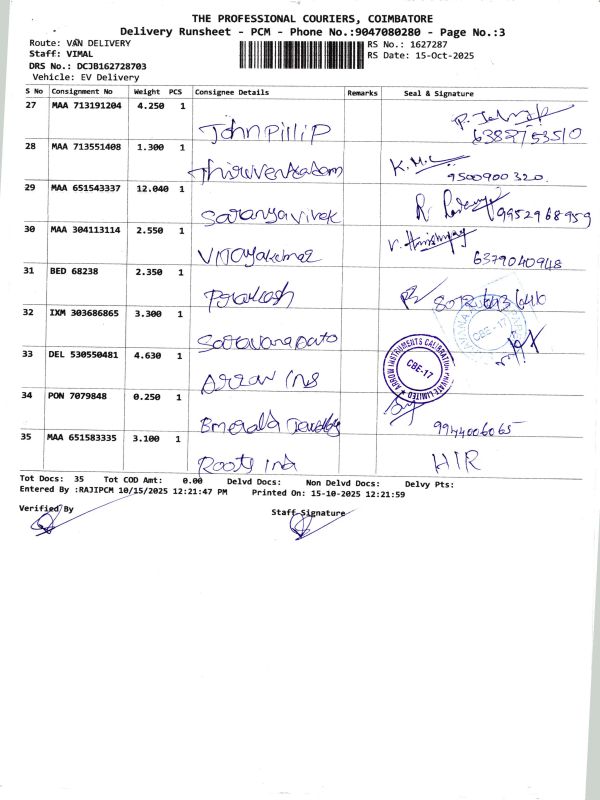 THE PROFESSIONAL COURIERS, COIMBATORE
Delivery Runsheet - PCM - Phone No.:9047080280 - Page No.:3
Route: VAN DELIVERY
RS No.: 1627287
Staff: VIMAL
RS Date: 15-Oct-2025
DRS No.: DCJB162728703
Vehicle: EV Delivery
S No Consignment No Weight PCS Consignee Details Remarks Seal & Signature
27 MAA 713191204 4.250 1 John Pillip
28 MAA 713551408 1.300 1 K.M.L
9500900320.
29 MAA 651543337 12.040 1 Saranya Vivek 9952968959
30 MAA 304113114 2.550 1 Vijayakumar
6379040948
31 BED 68238 2.350 1 Prakash
32 IXM 303686865 3.300 1 Saravana Auto
CBE -17
33 DEL 530550481 4.630 1 Arrow Ins
ARROW INSTRUMENTS CALIBRATION PRIVATE LIMITED ★
CBE-17
34 PON 7079848 0.250 1 Emerald 9944006065
35 MAA 651583335 3.100 1 Roots Ind HIR
Tot Docs: 35 Tot COD Amt: 0.00 Delvd Docs: Non Delvd Docs: Delvy Pts:
Entered By :RAJIPCM 10/15/2025 12:21:47 PM Printed On: 15-10-2025 12:21:59
Verified By
Staff Signature